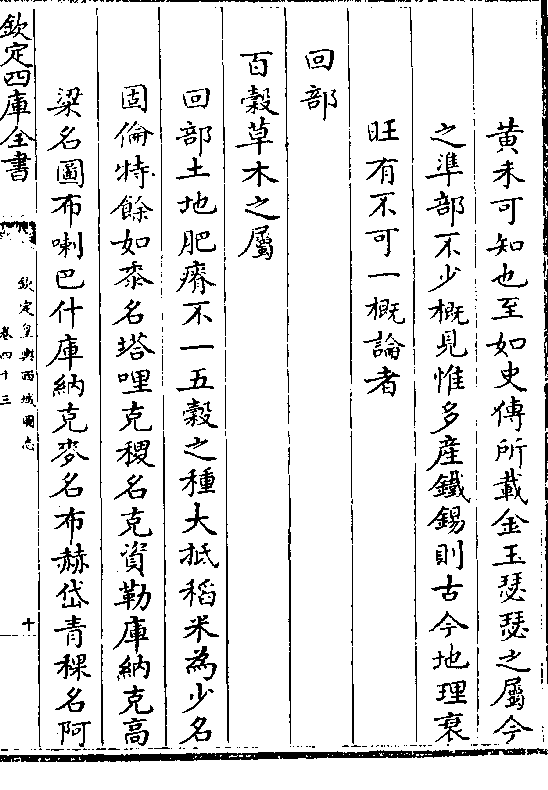 黄未可知也至如史傳所載金玉瑟瑟之屬今
之準部不少概見惟多産鐵錫則古今地理衰
旺有不可一概論者
回部
百穀草木之屬
回部土地肥瘠不一五穀之種大抵稻米為少名
固倫特餘如黍名塔哩克稷名克資勒庫納克高
粱名圖布喇巴什庫納克麥名布赫岱青稞名阿
欽定四庫全書
欽定皇輿西域圖志
卷四十三
十